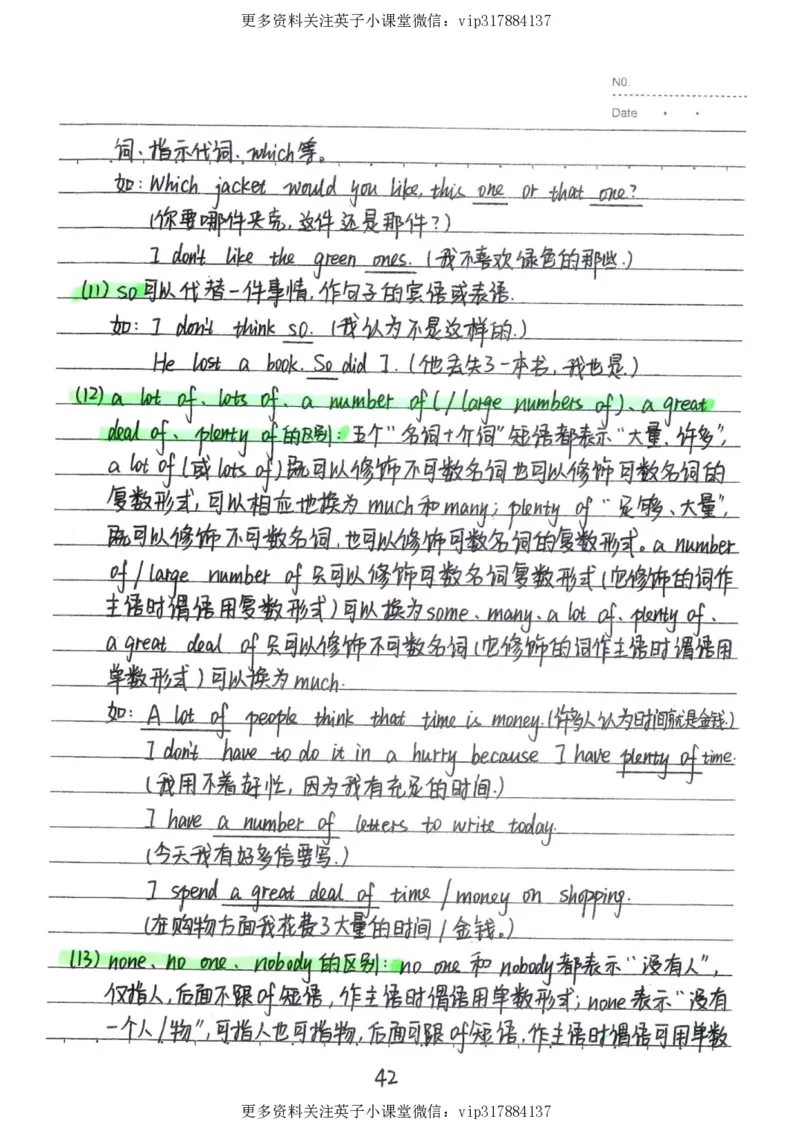 更多资料关注英子小课堂微信：vip317884137
N0.
Date
词、指示代词、which等。
如：Which jacket would you like, this one or that one?
(你要哪件夹克，这件还是那件？)
I don't like the green ones. (我不喜欢绿色的那些.)
(11) so可以代替一件事情，作句子的宾语或表语.
如：I don't think so. (我认为不是这样的.)
He lost a book. So did I. (他丢失了一本书，我也是.)
(12) a lot of、lots of、a number of (/large numbers of)、a great
deal of、plenty of的区别：五个“名词+介词”短语都表示“大量、许多”，
a lot of (或lots of)既可以修饰不可数名词也可以修饰可数名词的
复数形式，可以相应地换为much和many；plenty of “足够、大量”，
既可以修饰不可数名词，也可以修饰可数名词的复数形式。a number
of/large number of只可以修饰可数名词复数形式(它修饰的词作
主语时谓语用复数形式)可以换为some、many、a lot of、plenty of、
a great deal of只可以修饰不可数名词(它修饰的词作主语时谓语用
单数形式)可以换为much.
如：A lot of people think that time is money. (许多人认为时间就是金钱.)
I don't have to do it in a hurry because I have plenty of time.
(我用不着赶忙，因为我有充足的时间.)
I have a number of letters to write today.
(今天我有好多信要写.)
I spend a great deal of time/money on shopping.
(在购物方面我花费了大量的时间/金钱。)
(13) none、no one、nobody的区别：no one 和 nobody都表示“没有人”，
仅指人，后面不跟of短语，作主语时谓语用单数形式；none表示“没有
一个人/物”，可指人也可指物，后面可跟of短语，作主语时谓语可用单数
42
更多资料关注英子小课堂微信：vip317884137